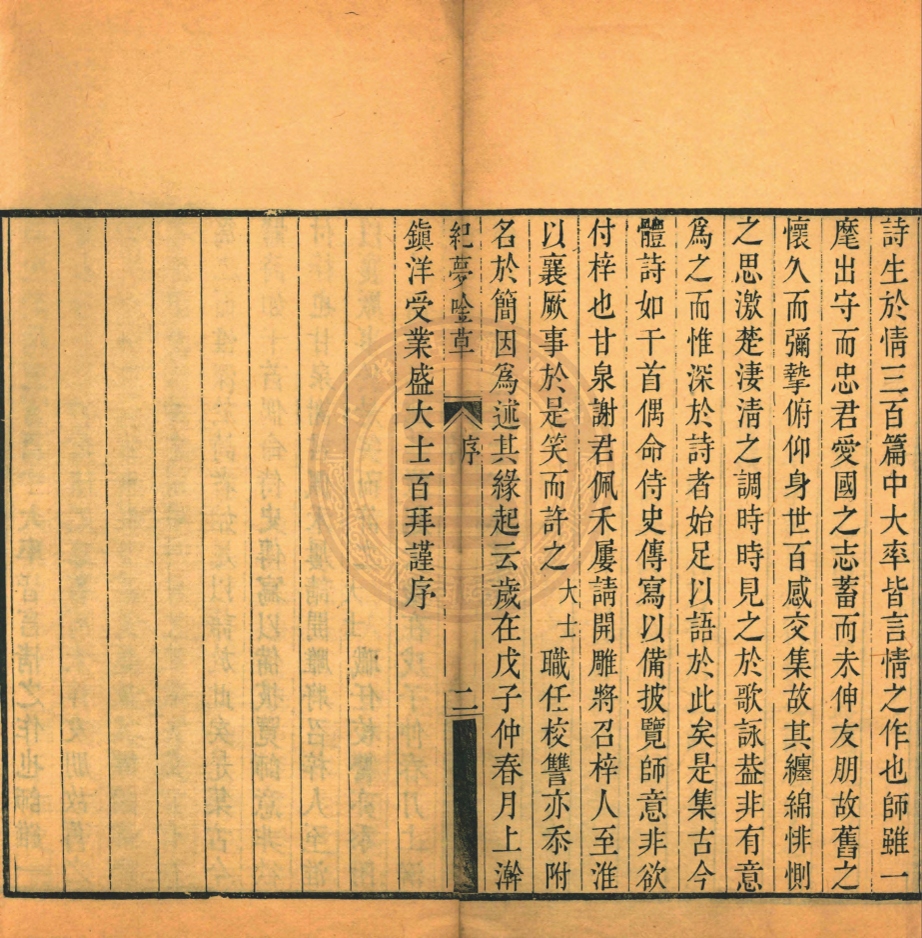 詩生於情三百篇中大率皆言情之作也師雖一
麾出守而忠君愛國之志蓄而未伸友朋故舊之
懷久而彌摯俯仰身世百感交集故其纏綿悱惻
之思激楚淒淸之調時時見之於歌詠葢非有意
爲之而惟深於詩者始足以語於此矣是集古今
體詩如干首偶命侍史傳寫以備披覽師意非欲
付梓也甘泉謝君佩禾屢請開雕將召梓人至淮
以襄厥事於是笑而許之大士職任校讐亦忝附
名於簡因爲述其緣起云歲在戊子仲春月上澣
紀夢唫草
序
二
鎭洋受業盛大士百拜謹序